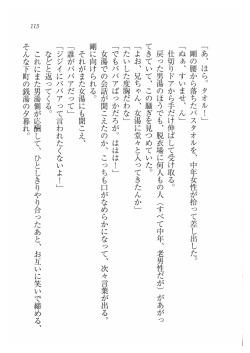 115
「あ、ほら。タオル！」
　剛の腰から落ちたバスタオルを、中年女性が拾って差し出した。
「ぬぁ、すいませんっ」
　仕切りドアから手だけ伸ばして受け取る。
　戻った男湯のほうでも、脱衣場に何人もの人（すべて中年、老男性だが）があがっ
てきていて、この騒ぎを見つめていた。
「よお、兄ちゃん、女湯に堂々と入ってきたんか」
「たいした度胸だわな」
「でもババアばっかだろが。ははは！」
　女湯での会話が聞こえたのか、こっちも口がなめらかになって、次々言葉が出る。
剛に向けられる。
　それがまた女湯にも聞こえ、
「誰がババアだって！」
「ジジイにババアって言われたくないよ！」
などと返ってくる。
　これにまた男湯側が応酬して、ひとしきりやり合ったあと、お互いに笑いで締める、
そんな下町の銭湯の夕暮れ。